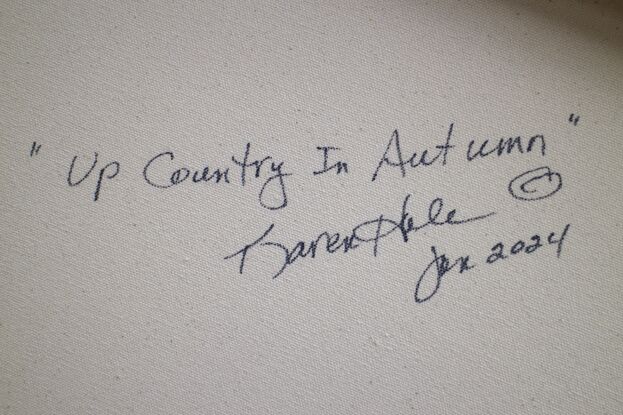 "Up Country In Autumn"
Karen Hale ©
Jan 2024